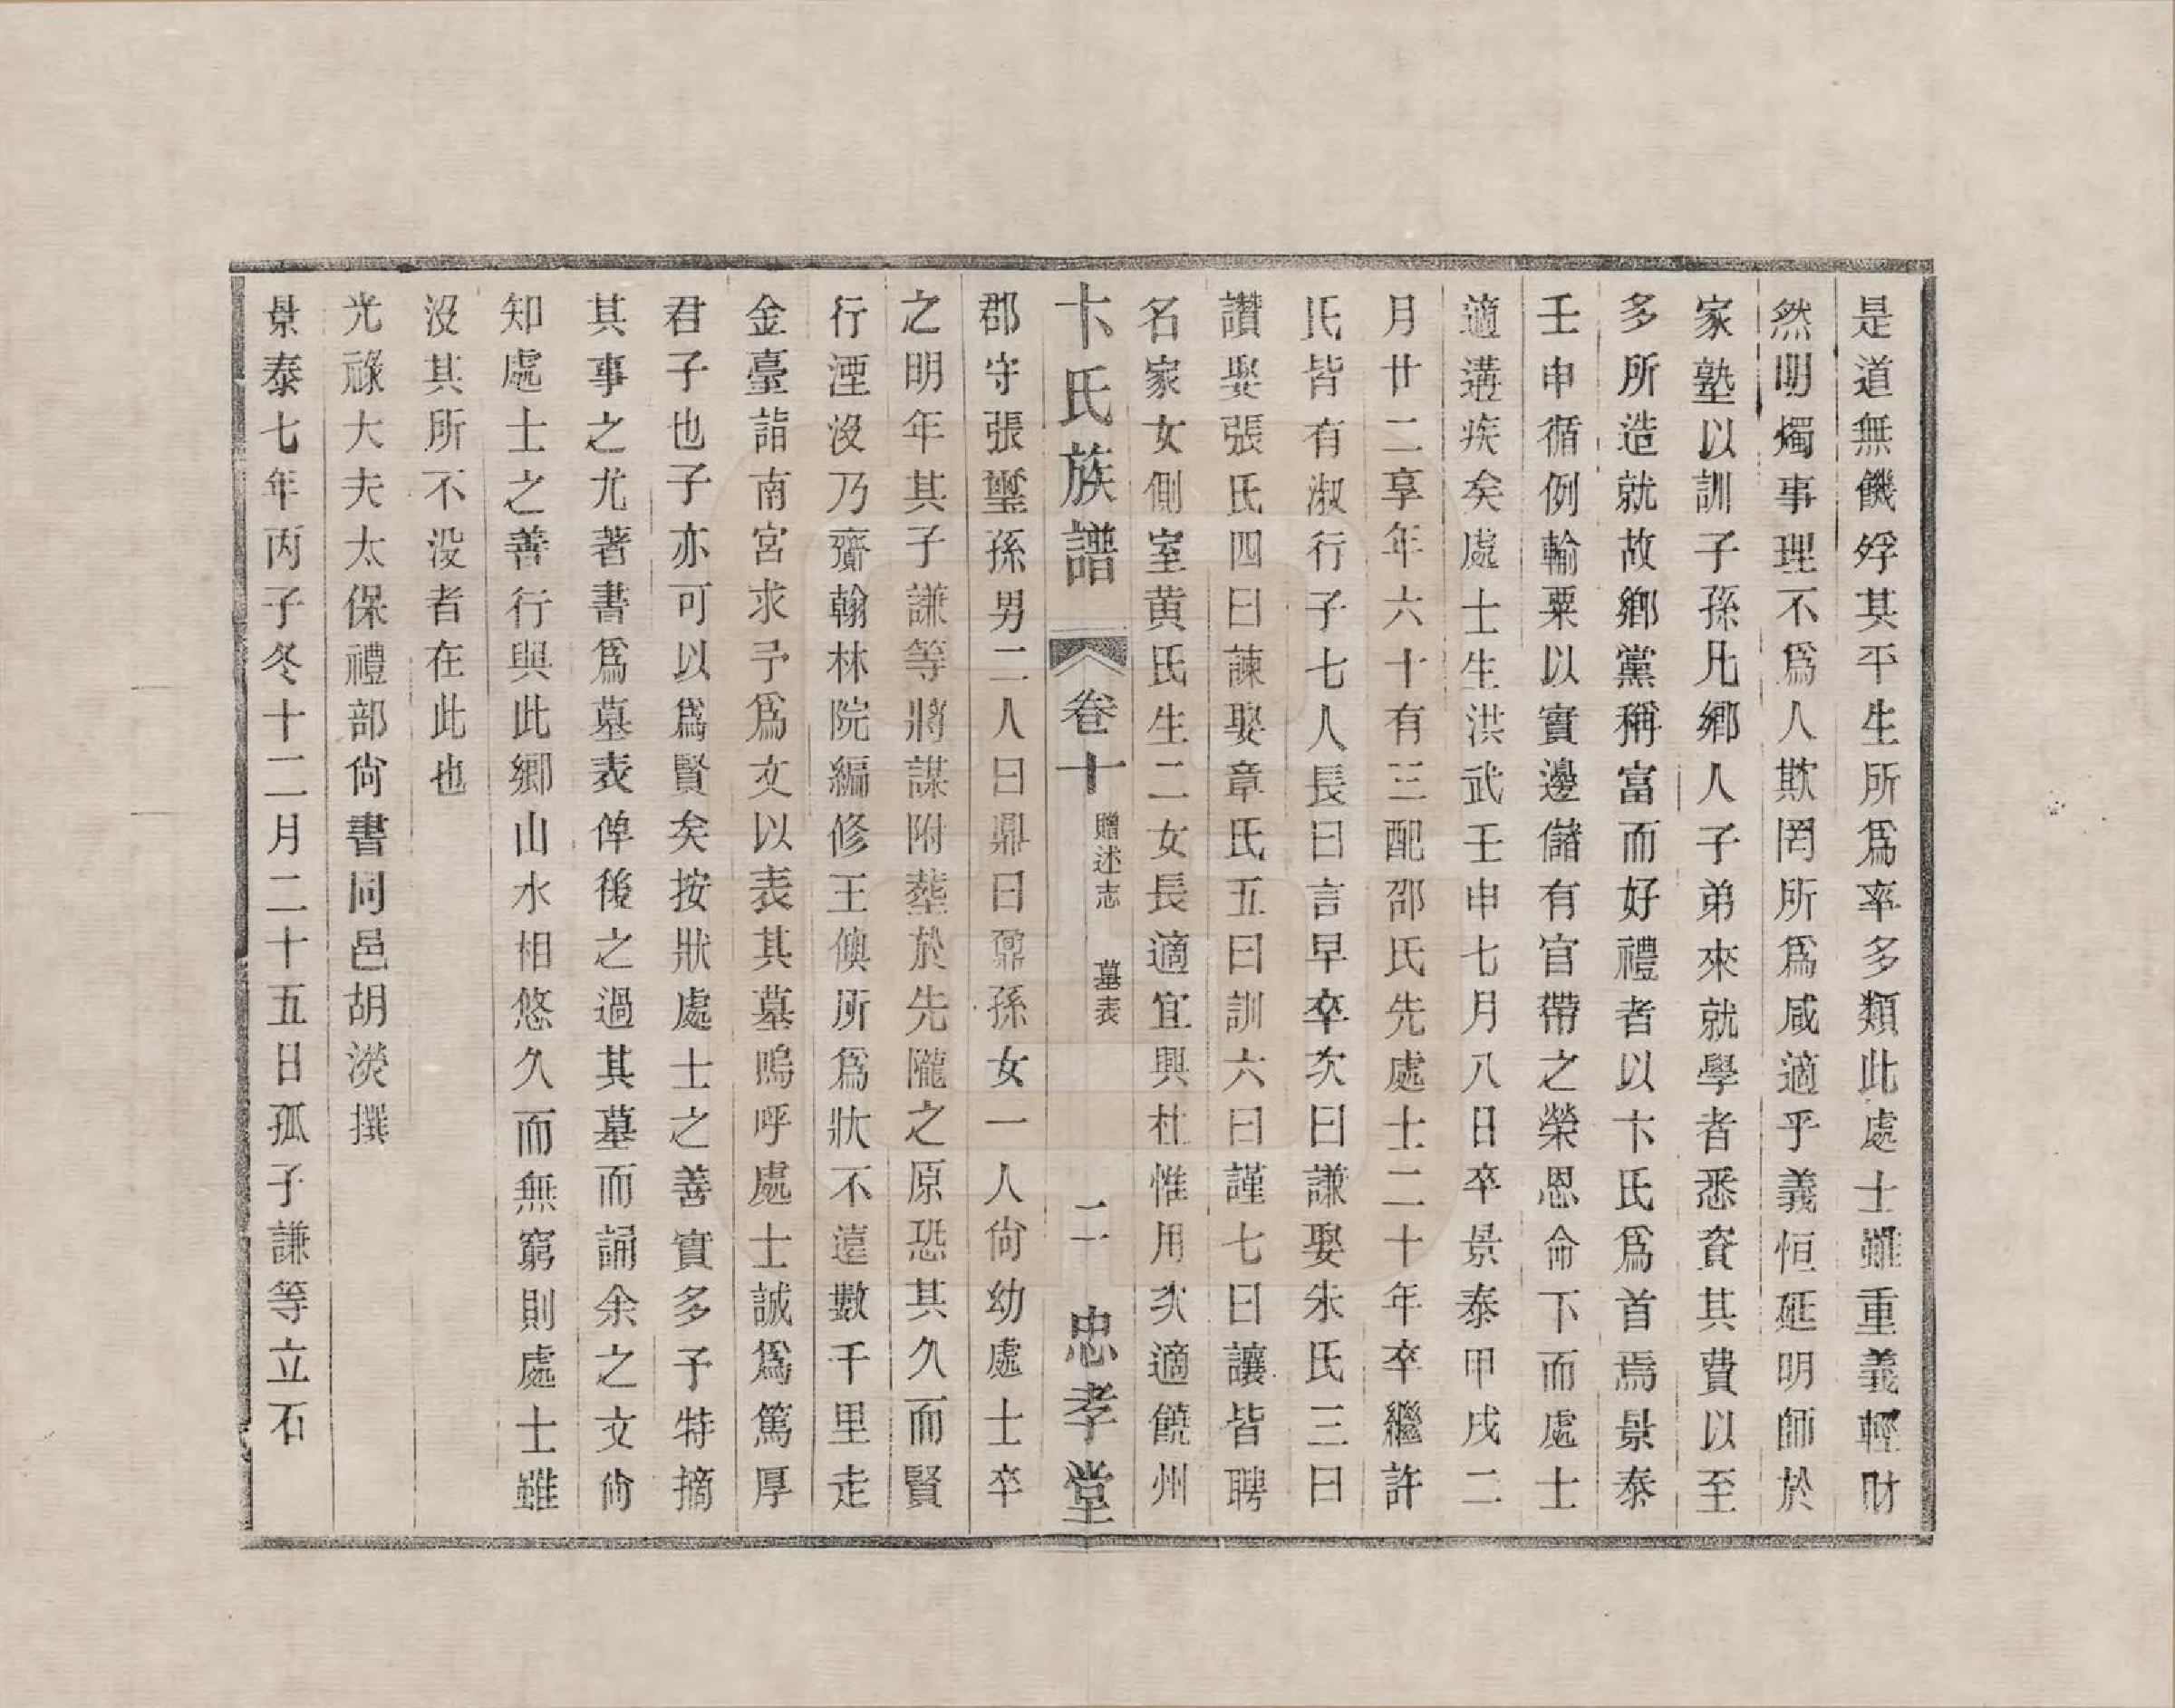 是道無饑殍其平生所爲率多類此處士雖重義輕財
然明燭事理不爲人欺罔所爲咸適乎義恒延明師於
家塾以訓子孫凡鄉人子弟來就學者悉資其費以至
多所造就故鄉黨稱富而好禮者以卞氏爲首焉景泰
壬申循例輸粟以實邊儲有官帶之榮恩命下而處士
適遘疾矣處士生洪武壬申七月八日卒景泰甲戌二
月廿二享年六十有三配邵氏先處士二十年卒繼許
氏皆有淑行子七人長曰言早卒次曰謙娶朱氏三曰
讚娶張氏四曰諫娶章氏五曰訓六曰謹七曰讓皆聘
名家女側室黄氏生二女長適宜興杜惟用次適饒州
卞氏族譜 卷十 贈述志 墓表 二 忠孝堂
郡守張璽孫男二人曰鼎曰鼐孫女一人尙幼處士卒
之明年其子謙等將謀附塟於先隴之原恐其久而賢
行湮沒乃齎翰林院編修王㒜所爲狀不遠數千里走
金臺詣南宮求予爲文以表其墓嗚呼處士誠爲篤厚
君子也子亦可以爲賢矣按狀處士之善實多予特摘
其事之尤著書爲墓表俾後之過其墓而誦余之文尙
知處士之善行與此鄉山水相悠久而無窮則處士雖
沒其所不没者在此也
光祿大夫太保禮部尙書同邑胡濙撰
景泰七年丙子冬十二月二十五日孤子謙等立石